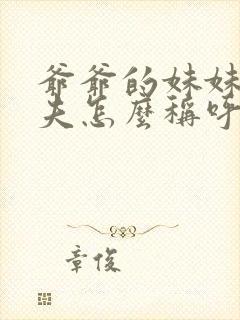 爺爺的妹妹
夫怎麼稱呼
章俊